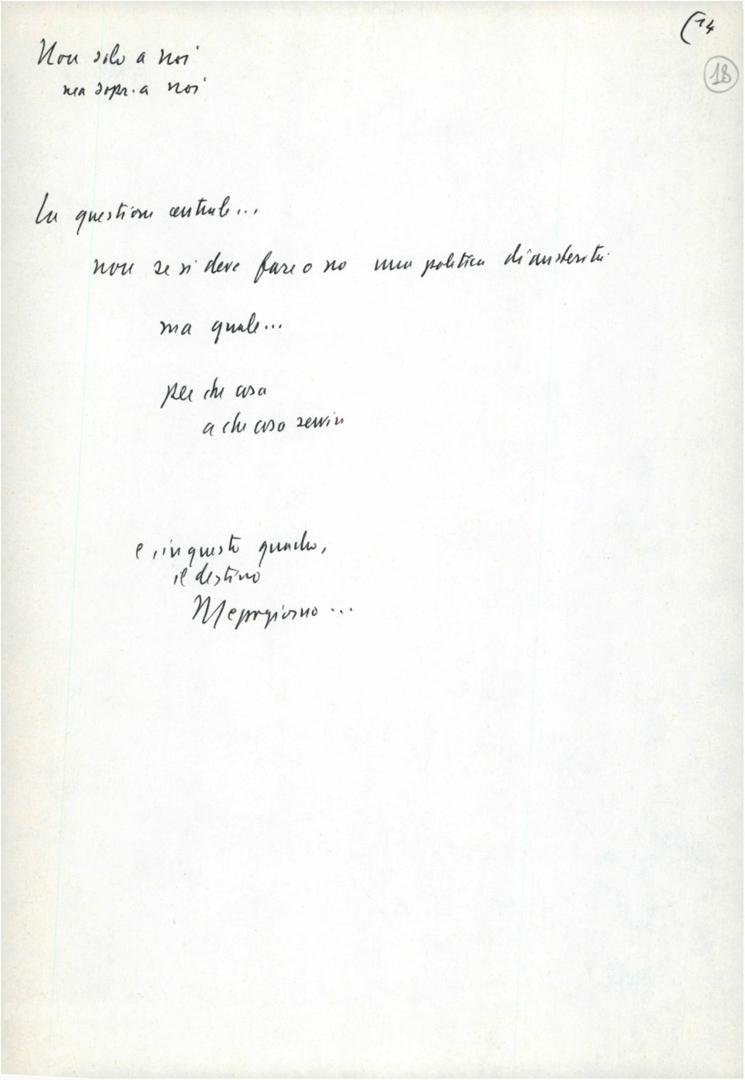 (14
18
Non solo a noi
ma sopr. a noi
La questione centrale...
non se si deve fare o no una politica di austerità
ma quale...
per che cosa
a che cosa serviva
e, in questo quadro,
il destino
Mezzogiorno...